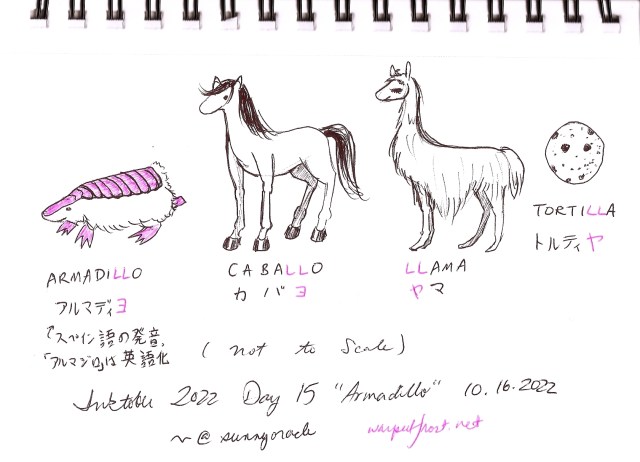 ARMADILLO
アルマディヨ
「スペイン語の発音、
「アルマジロ」は英語化
CABALLO
カバヨ
LLAMA
ヤマ
TORTILLA
トルティヤ
(not to scale)
Inktober 2022 Day 15 "Armadillo" 10.16.2022
~@sunnyoracle